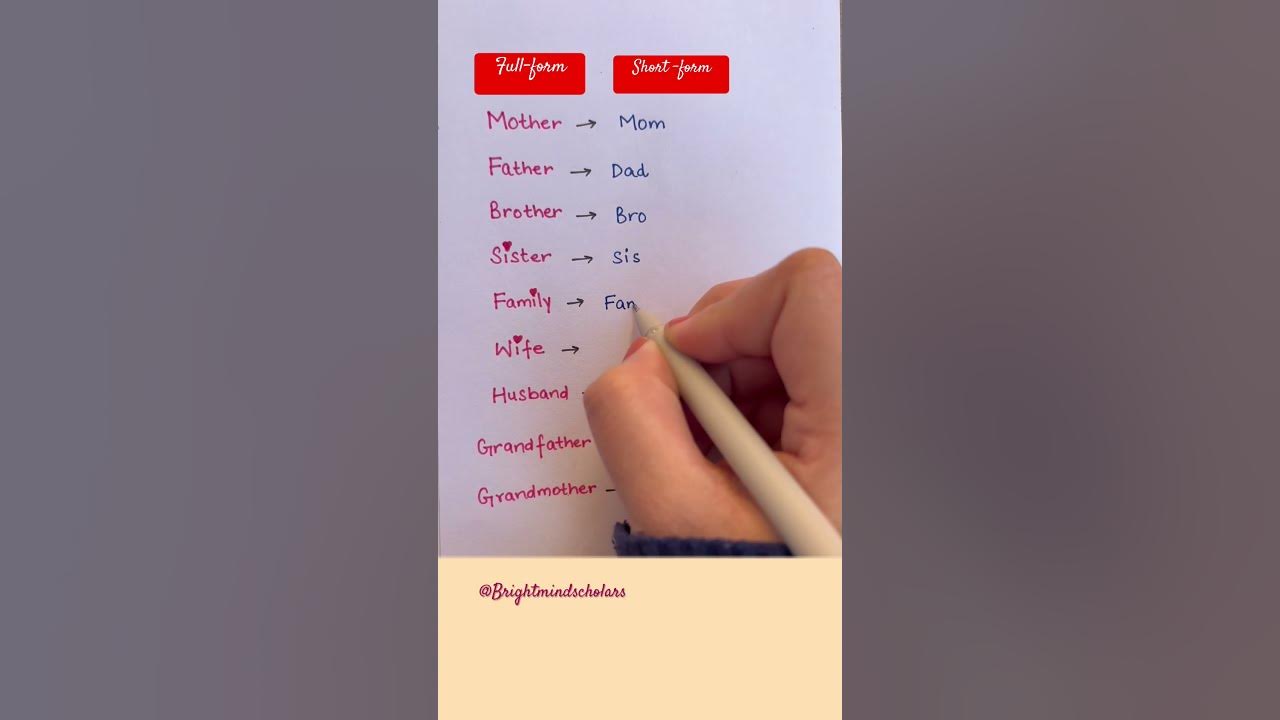 Full-form Short-form
Mother → Mom
Father → Dad
Brother → Bro
Sister → Sis
Family → Fam
Wife →
Husband
Grandfather
Grandmother
@Brightmindscholars